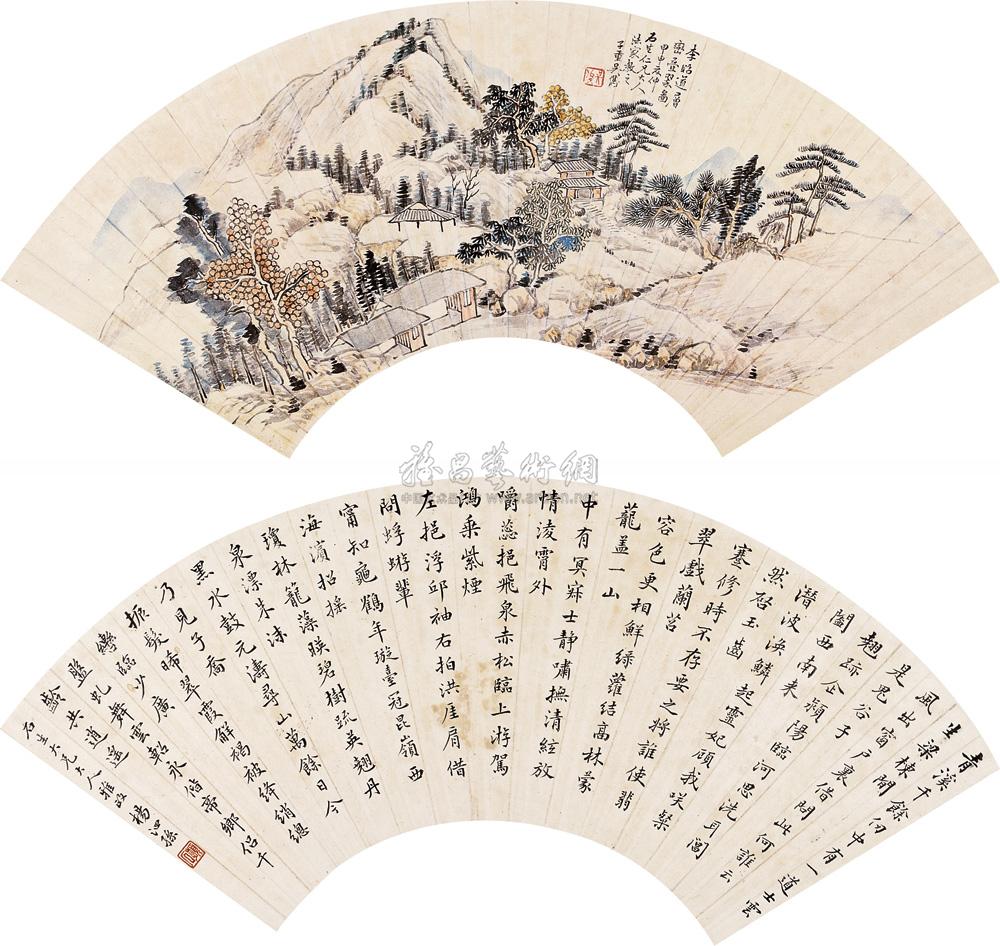 李昭道層
巒疊翠圖
甲申夏仲
石生仁兄大人
法家教之
子重吳雋
雅昌藝術網
青溪千餘仞中有一道士雲
生梁棟間
風出窗戶裏借問此何誰云
是鬼谷子
翹跡企潁陽臨河思洗耳閶
闔西南來
潛波渙鱗起靈妃顧我笑粲
然啓玉齒
蹇修時不存要之將誰使翡
翠戲蘭苕
容色更相鮮綠蘿結高林蒙
蘢蓋一山
中有冥寂士靜嘯撫清絃放
情淩霄外
嚼蕊挹飛泉赤松臨上游駕
鴻乘紫煙
左挹浮邱袖右拍洪厓肩借
問蜉蝣輩
甯知龜鶴年璇臺冠昆嶺西
海濱招搖
瓊林籠藻暎碧樹疏英翹丹
泉漂朱沫
黑水鼓元濤尋山萬餘日今
乃見子喬
振髮晞翠霞解褐被絳綃總
轡臨少廣
盤虬舞雲軺永偕帝鄉侶千
齡共逍遙
石生大兄大人雅政 楊沂孫